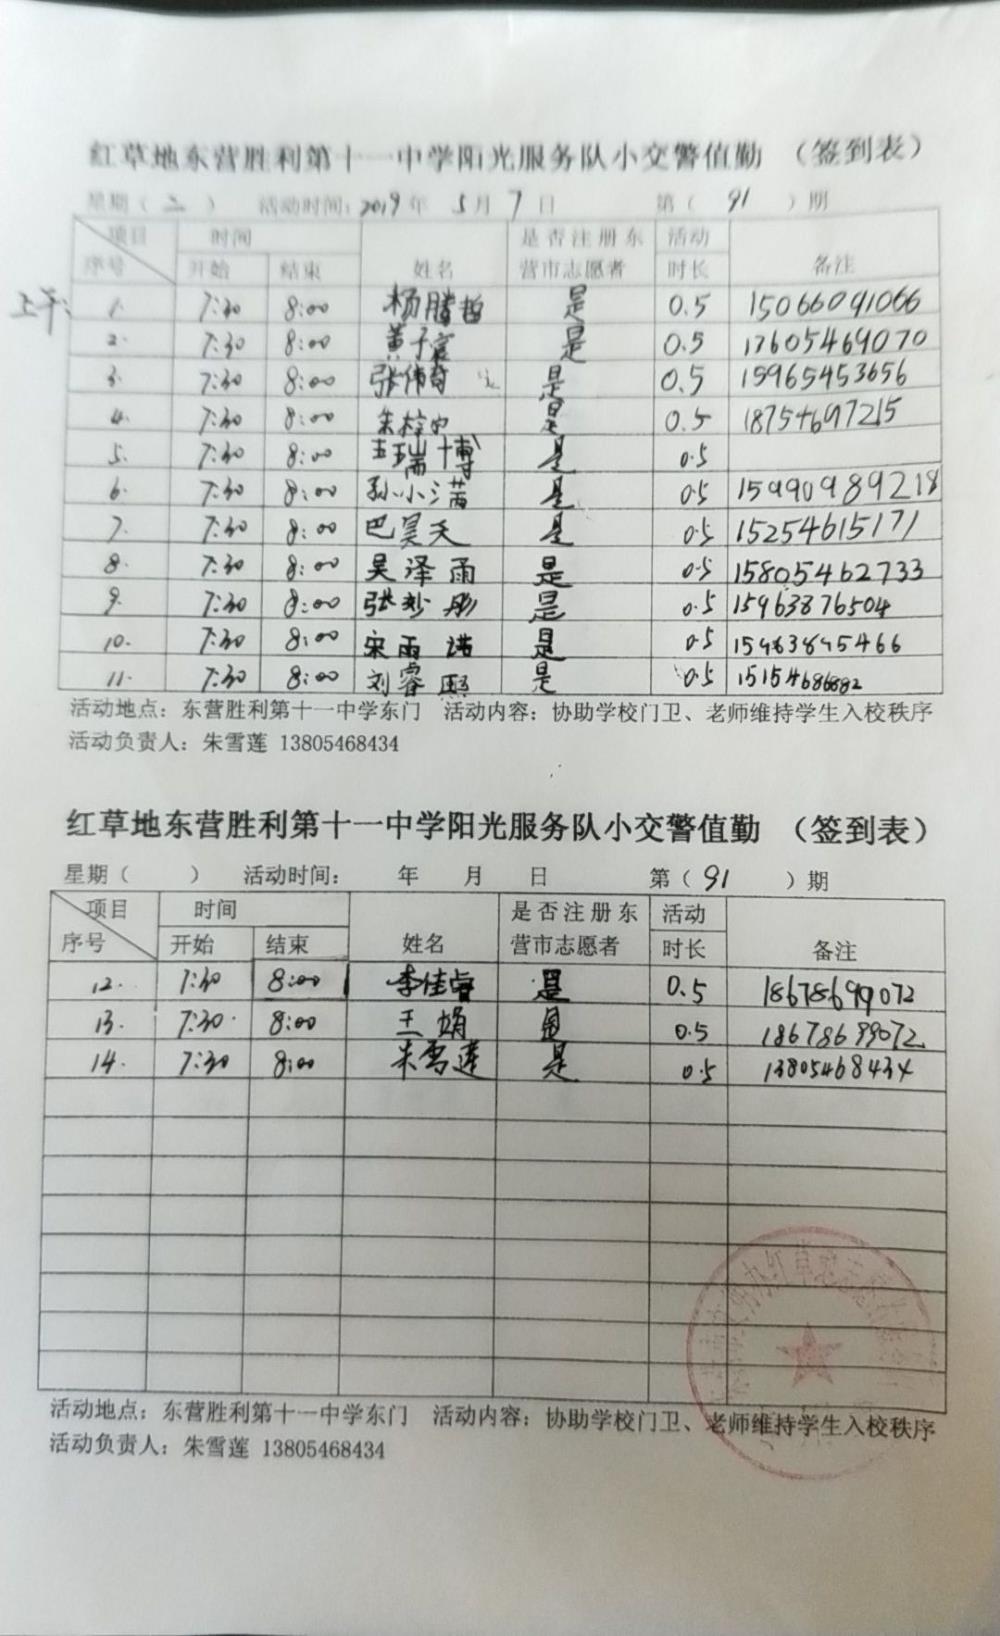 红草地东营胜利第十一中学阳光服务队小交警值勤 （签到表）
星期（二） 活动时间：2019年 5月 7日 第（91）期
项目 时间 是否注册东 活动
序号 开始 结束 姓名 营市志愿者 时长 备注
上午： 1. 7:30 8:00 杨腾哲 是 0.5 15066091066
2. 7:30 8:00 黄子宸 是 0.5 13605469070
3. 7:30 8:00 张倚奇 是 0.5 15965453656
4. 7:30 8:00 朱梓 是 0.5 18754697215
5. 7:30 8:00 王瑞博 是 0.5
6. 7:30 8:00 孙小茜 是 0.5 15990989218
7. 7:30 8:00 巴昊天 是 0.5 15254615171
8. 7:30 8:00 吴泽雨 是 0.5 15805462733
9. 7:30 8:00 张 彤 是 0.5 15963876504
10. 7:30 8:00 宋雨诺 是 0.5 15963845466
11. 7:30 8:00 刘睿熙 是 0.5 15154686882
活动地点：东营胜利第十一中学东门 活动内容：协助学校门卫、老师维持学生入校秩序
活动负责人：朱雪莲 13805468434
红草地东营胜利第十一中学阳光服务队小交警值勤 （签到表）
星期（ ） 活动时间： 年 月 日 第（91）期
项目 时间 是否注册东 活动
序号 开始 结束 姓名 营市志愿者 时长 备注
12. 7:30 8:00 李佳睿 是 0.5 18678699072
13. 7:30 8:00 王娟 是 0.5 18678699072
14. 7:30 8:00 朱雪莲 是 0.5 13805468434
活动地点：东营胜利第十一中学东门 活动内容：协助学校门卫、老师维持学生入校秩序
活动负责人：朱雪莲 13805468434